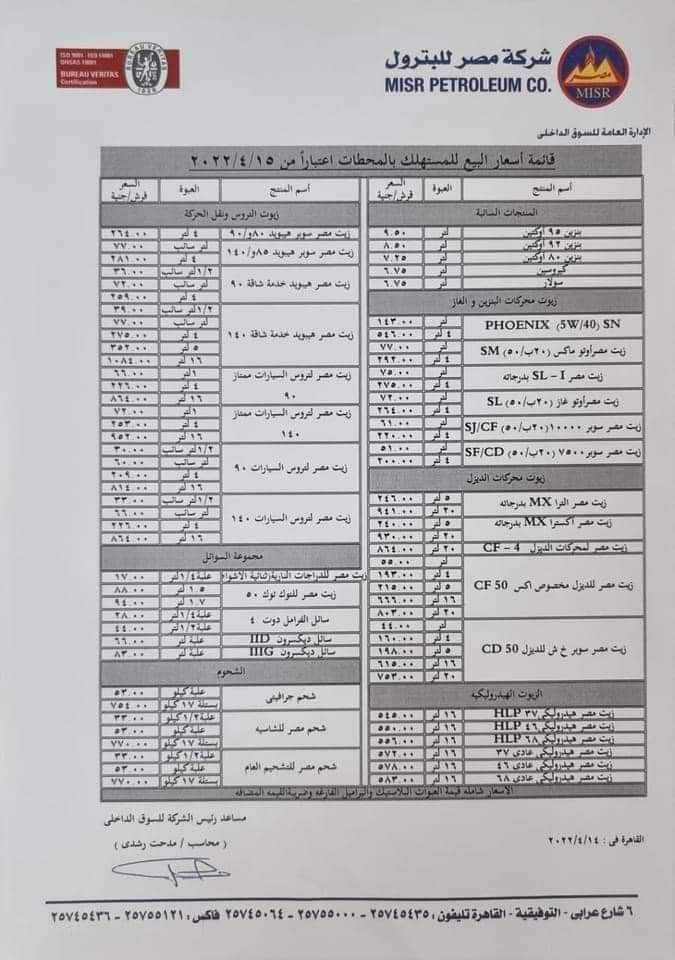 ISO 9001 - ISO 14001
OHSAS 18001
BUREAU VERITAS
Certification
BUREAU VERITAS
1828
شركة مصر للبترول
MISR PETROLEUM CO.
مصر
MISR
الإدارة العامة للسوق الداخلى
قائمة أسعار البيع للمستهلك بالمحطات اعتباراً من ٢٠٢٢/٤/١٥
أسم المنتج العبوة السعر قرش/جنية
المنتجات السائبة
بنزين ٩٥ أوكتين لتر ٩.٥٠
بنزين ٩٢ أوكتين لتر ٨.٥٠
بنزين ٨٠ أوكتين لتر ٧.٢٥
كيروسين لتر ٦.٧٥
سولار لتر ٦.٧٥
زيوت محركات البنزين و الغاز
PHOENIX (5W/40) SN لتر ١٤٣.٠٠
٤ لتر ٥٤٦.٠٠
زيت مصرأوتو ماكس (٢٠ب/٥٠) SM لتر ٧٧.٠٠
٤ لتر ٢٩٢.٠٠
زيت مصر SL – I بدرجاته لتر ٧٥.٠٠
٤ لتر ٢٧٥.٠٠
زيت مصرأوتو غاز (٢٠ب/٥٠) SL لتر ٧٢.٠٠
٤ لتر ٢٦٤.٠٠
زيت مصر سوبر ١٠٠٠٠(٢٠ب/٥٠) SJ/CF لتر ٦١.٠٠
٤ لتر ٢٢٠.٠٠
زيت مصر سوبر ٧٥٠٠ (٢٠ب/٥٠) SF/CD لتر ٥١.٠٠
٤ لتر ٢٠٠.٠٠
زيوت محركات الديزل
زيت مصر الترا MX بدرجاته ٥ لتر ٢٤٦.٠٠
٢٠ لتر ٩٤١.٠٠
زيت مصر اكسترا MX بدرجاته ٥ لتر ٢٤٠.٠٠
٢٠ لتر ٩٣٠.٠٠
زيت مصر لمحركات الديزل CF – 4 ٢٠ لتر ٨٦٤.٠٠
زيت مصر للديزل مخصوص اكس CF 50 لتر ٥٥.٠٠
٤ لتر ١٩٣.٠٠
٥ لتر ٢١٥.٠٠
١٦ لتر ٦٦٦.٠٠
٢٠ لتر ٨٠٣.٠٠
زيت مصر سوبر خ ش للديزل CD 50 لتر ٤٤.٠٠
٤ لتر ١٦٠.٠٠
٥ لتر ١٩٨.٠٠
١٦ لتر ٦١٥.٠٠
٢٠ لتر ٧٥٣.٠٠
الزيوت الهيدروليكيه
زيت مصر هيدروليكى ٣٧ HLP ١٦ لتر ٥٤٥.٠٠
زيت مصر هيدروليكى ٤٦ HLP ١٦ لتر ٥٥٠.٠٠
زيت مصر هيدروليكى ٦٨ HLP ١٦ لتر ٥٥٦.٠٠
زيت مصر هيدروليكى عادى ٣٧ ١٦ لتر ٥٧٢.٠٠
زيت مصر هيدروليكى عادى ٤٦ ١٦ لتر ٥٧٨.٠٠
زيت مصر هيدروليكى عادى ٦٨ ١٦ لتر ٥٨٣.٠٠
أسم المنتج العبوة السعر قرش/جنية
زيوت التروس ونقل الحركة
زيت مصر سوبر هيبويد ٨٠و/٩٠ ٤ لتر ٢٦٤.٠٠
زيت مصر سوبر هيبويد ٨٥و/١٤٠ لتر سائب ٧٧.٠٠
٤ لتر ٢٨١.٠٠
زيت مصر هيبويد خدمة شاقة ٩٠ ١/٢لتر سائب ٣٦.٠٠
لتر سائب ٧٢.٠٠
٤ لتر ٢٥٩.٠٠
زيت مصر هيبويد خدمة شاقة ١٤٠ ١/٢لتر سائب ٣٩.٠٠
لتر سائب ٧٧.٠٠
٤ لتر ٢٧٥.٠٠
٥ لتر ٣٥٢.٠٠
١٦ لتر ١٠٨٤.٠٠
زيت مصر لتروس السيارات ممتاز ٩٠ ١لتر ٦٦.٠٠
٤ لتر ٢٢٦.٠٠
١٦ لتر ٨٦٤.٠٠
زيت مصر لتروس السيارات ممتاز ١٤٠ ١لتر ٧٢.٠٠
٤ لتر ٢٥٣.٠٠
١٦ لتر ٩٥٢.٠٠
زيت مصر لتروس السيارات ٩٠ ١/٢ لتر سائب ٣٠.٠٠
لتر سائب ٦٠.٠٠
٤ لتر ٢٠٩.٠٠
١٦ لتر ٨١٤.٠٠
زيت مصر لتروس السيارات ١٤٠ ١/٢ لتر سائب ٣٣.٠٠
لتر سائب ٦٦.٠٠
٤ لتر ٢٢٦.٠٠
١٦ لتر ٨٦٤.٠٠
مجموعة السوائل
زيت مصر للدراجات النارية(ثنائية الأشواط علبة١/٤لتر ١٧.٠٠
زيت مصر للتوك توك ٥٠ ١.٥ لتر ٨٨.٠٠
١.٧ لتر ٩٤.٠٠
سائل الفرامل دوت ٤ علبة١/٤لتر ٢٨.٠٠
علبة١/٢لتر ٤٤.٠٠
سائل ديكسرون IID علبة لتر ٦٦.٠٠
سائل ديكسرون IIIG علبة لتر ٨٣.٠٠
الشحوم
شحم جرافيتى علبة كيلو ٥٣.٠٠
بستلة ١٧ كيلو ٧٥٤.٠٠
شحم مصر للشاسيه علبة١/٢ كيلو ٣٣.٠٠
علبة كيلو ٥٣.٠٠
بستلة ١٧ كيلو ٧٧٠.٠٠
شحم مصر للتشحيم العام علبة١/٢ كيلو ٣٣.٠٠
علبة كيلو ٥٣.٠٠
بستلة ١٧ كيلو ٧٧٠.٠٠
الأسعار شامله قيمة العبوات البلاستيك والبراميل الفارغه وضريبة القيمه المضافه
مساعد رئيس الشركة للسوق الداخلى
( محاسب / مدحت رشدى )
القاهرة فى : ٢٠٢٢/٤/١٤
٦ شارع عرابى - التوفيقية - القاهرة تليفون : ٢٥٧٤٥٤٣٥ - ٢٥٧٥٥٠٠٠ - ٢٥٧٤٥٠٦٤ فاكس : ٢٥٧٥٥١٢١ - ٢٥٧٤٥٤٣٦